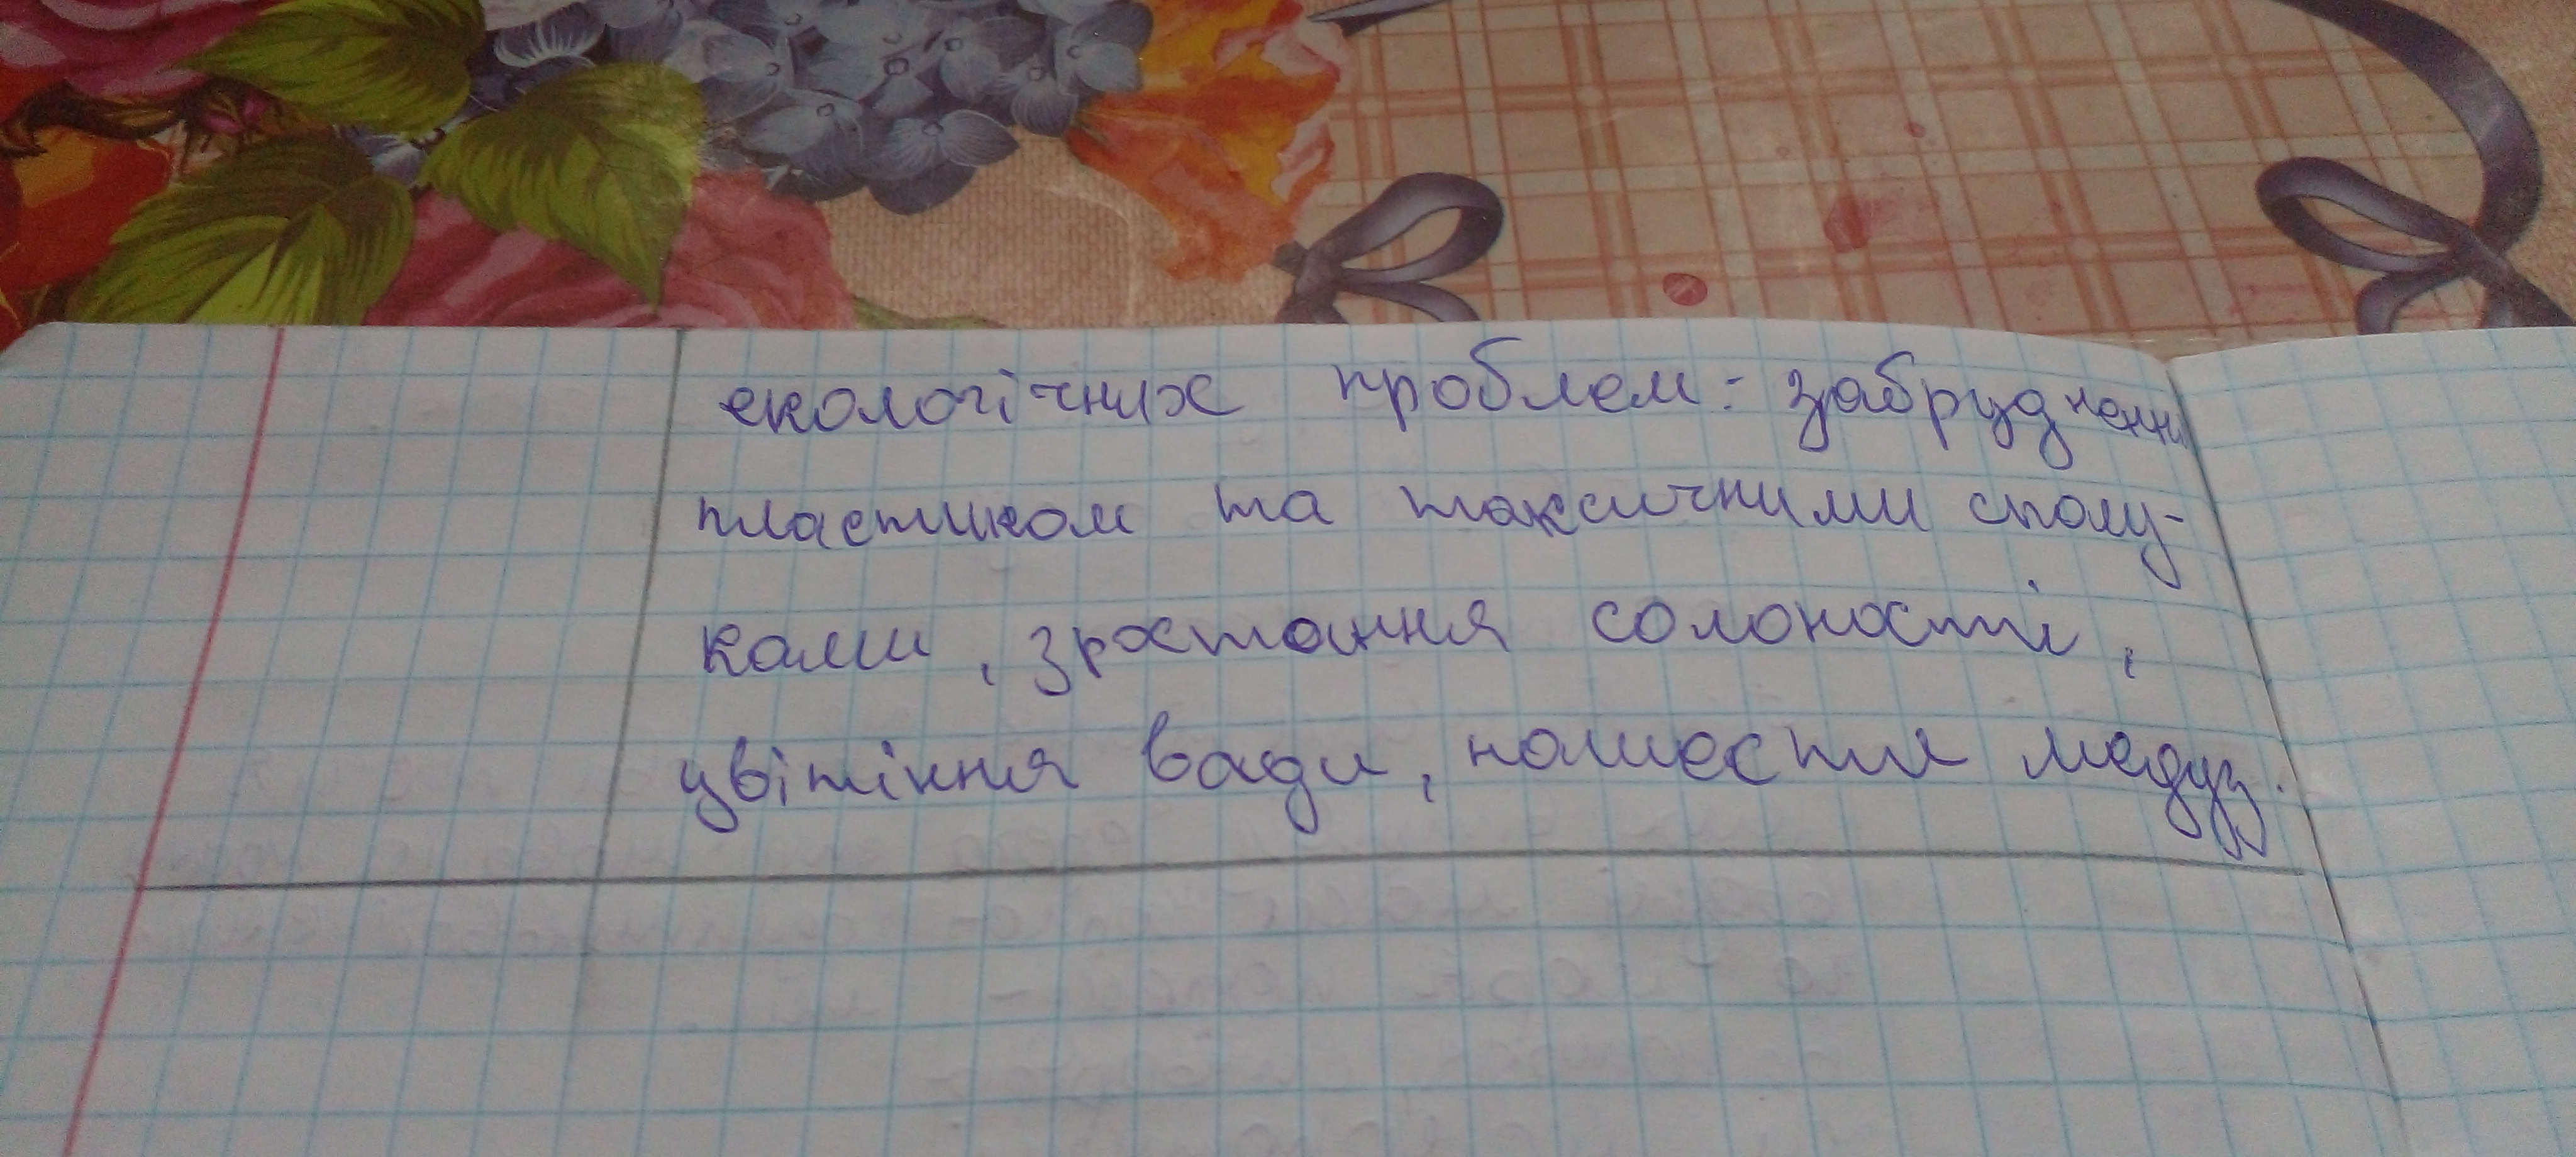 екологічних проблем: забруднення
пластиком та токсичними сполу-
ками, зростання солоності,
цвітіння води, нашестя медуз.